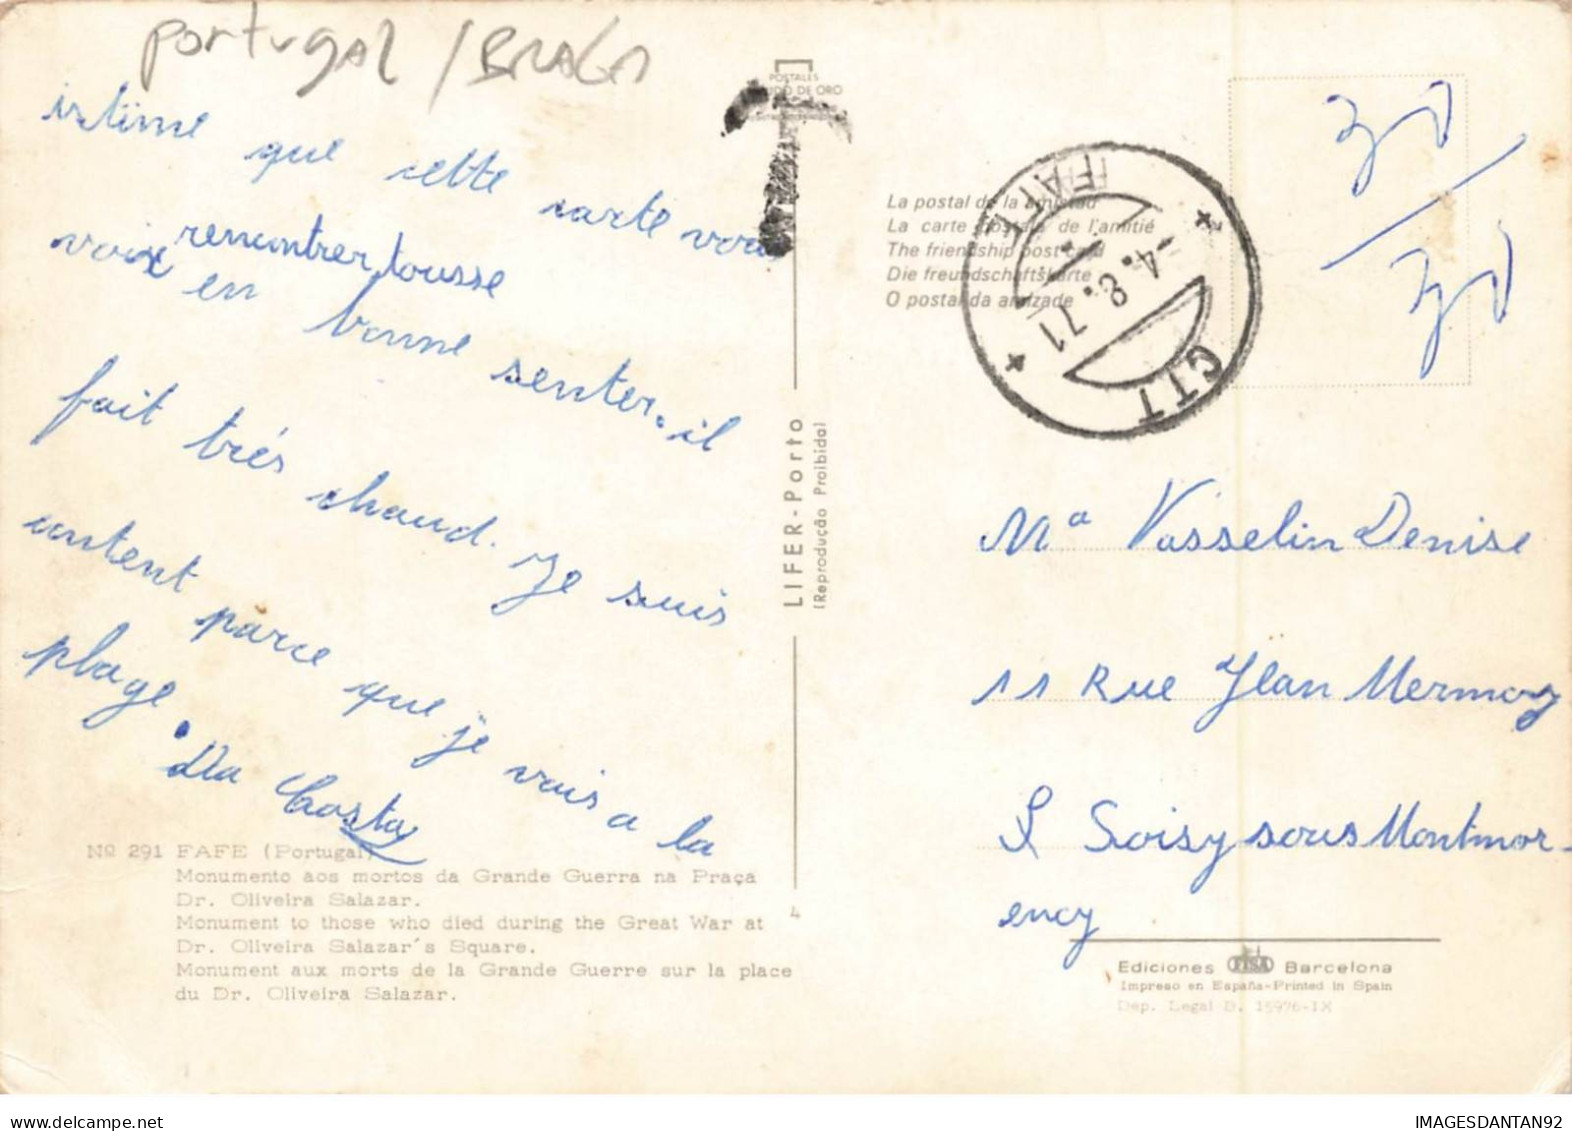 Portugal / BRAGA
istime que cette carte vous
voix rencontrer tousse
en bonne senter. il
fait trés chaud. Je suis
content parce que je vais a la
plage.
Da Costa
Nº 291 FAFE (Portugal)
Monumento aos mortos da Grande Guerra na Praça
Dr. Oliveira Salazar.
Monument to those who died during the Great War at
Dr. Oliveira Salazar´s Square.
Monument aux morts de la Grande Guerre sur la place
du Dr. Oliveira Salazar.
POSTALES
DE ORO
LIFER - Porto
(Reprodução Proibida)
4
La postal de la amistad
La carte postale de l'amitié
The friendship post card
Die freundschaftskarte
O postal da amizade
T
FAFE
-4. 8. 71
CTT
Mª Vasselin Denise
11 Rue Jean Mermoz
Soisy sous Montmor-
ency
Ediciones FISA Barcelona
Impreso en España-Printed in Spain
Dep. Legal B. 15976-IX
IMAGESDANTAN92